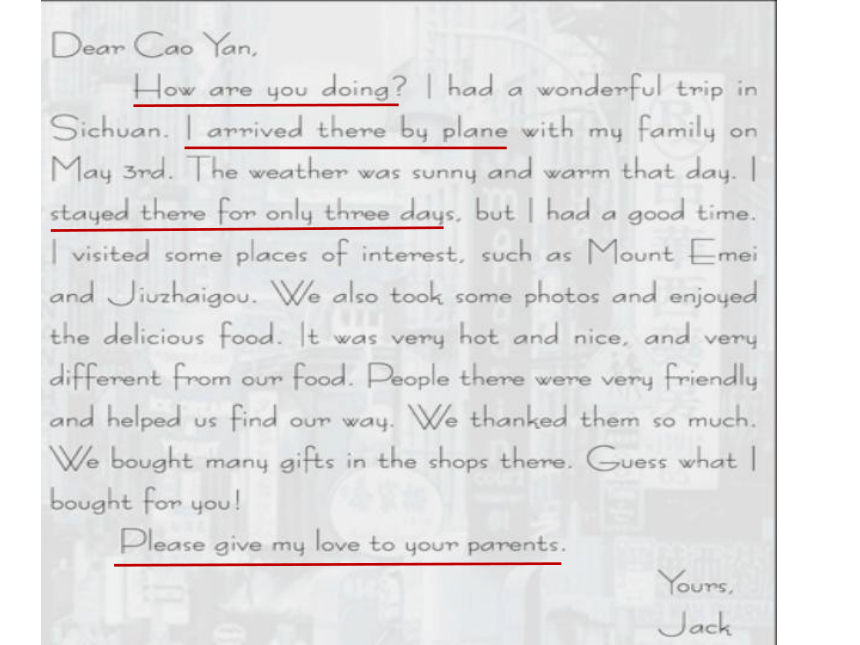 Dear Cao Yan,
How are you doing? I had a wonderful trip in
Sichuan. I arrived there by plane with my family on
May 3rd. The weather was sunny and warm that day. I
stayed there for only three days, but I had a good time.
I visited some places of interest, such as Mount Emei
and Jiuzhaigou. We also took some photos and enjoyed
the delicious food. It was very hot and nice, and very
different from our food. People there were very friendly
and helped us find our way. We thanked them so much.
We bought many gifts in the shops there. Guess what I
bought for you!
Please give my love to your parents.
Yours,
Jack